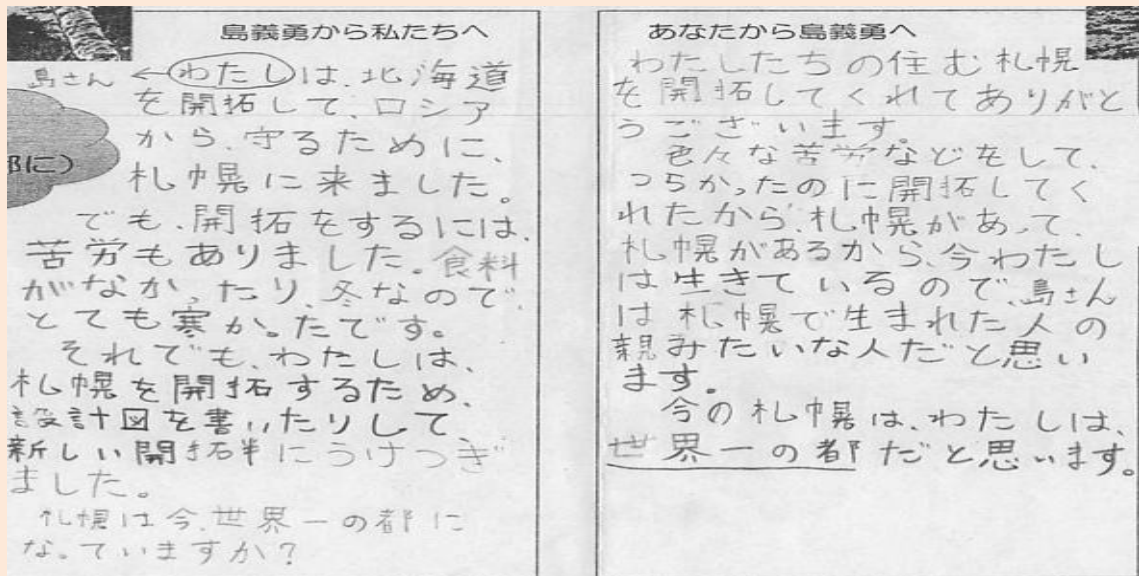 島義勇から私たちへ
島さん ←わたしは、北海道
を開拓して、ロシア
から、守るために、
札幌に来ました。
でも、開拓をするには、
苦労もありました。食料
がなかったり、冬なので、
とても寒かったです。
それでも、わたしは、
札幌を開拓するため、
設計図を書いたりして、
新しい開拓半にうけつぎ
ました。
札幌は今、世界一の都に
なっていますか？
に）
あなたから島義勇へ
わたしたちの住む札幌
を開拓してくれてありがと
うございます。
色々な苦労などをして、
つらかったのに開拓してく
れたから、札幌があって、
札幌があるから、今わたし
は生きているので、島さん
は札幌で生まれた人の
親みたいな人だと思い
ます。
今の札幌は、わたしは、
世界一の都だと思います。